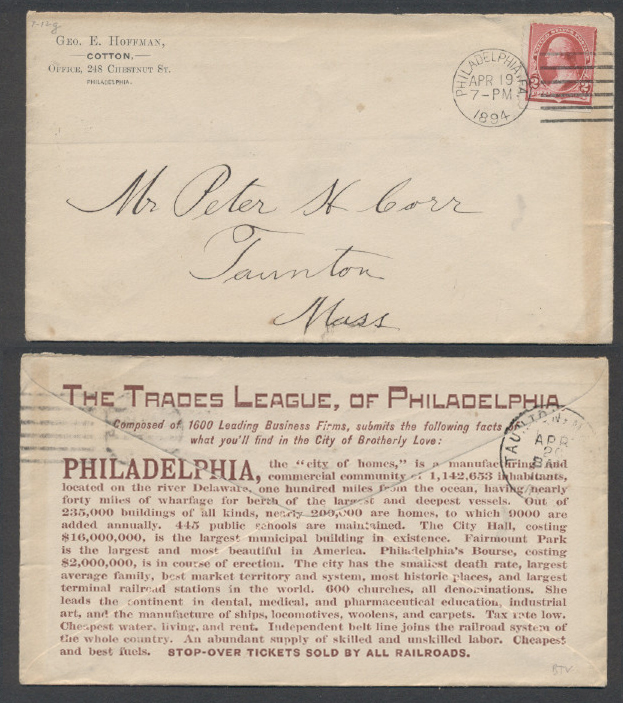 GEO. E. HOFFMAN,
COTTON.
OFFICE, 248 CHESTNUT ST.
PHILADELPHIA.
PHILADELPHIA, PA.
APR 19
7-PM
1894
2 2
Mr Peter H Corr
Taunton
Mass
THE TRADES LEAGUE, OF PHILADELPHIA
Composed of 1600 Leading Business Firms, submits the following facts
what you'll find in the City of Brotherly Love:
PHILADELPHIA, the "city of homes," is a manufacturing and
commercial community of 1,142,653 inhabitants,
located on the river Delaware, one hundred miles from the ocean, having nearly
forty miles of wharfage for berth of the largest and deepest vessels. Out of
235,000 buildings of all kinds, nearly 200,000 are homes, to which 9000 are
added annually. 445 public schools are maintained. The City Hall, costing
$16,000,000, is the largest municipal building in existence. Fairmount Park
is the largest and most beautiful in America. Philadelphia's Bourse, costing
$2,000,000, is in course of erection. The city has the smallest death rate, largest
average family, best market territory and system, most historic places, and largest
terminal railroad stations in the world. 600 churches, all denominations. She
leads the continent in dental, medical, and pharmaceutical education, industrial
art, and the manufacture of ships, locomotives, woolens, and carpets. Tax rate low.
Cheapest water, living, and rent. Independent belt line joins the railroad system of
the whole country. An abundant supply of skilled and unskilled labor. Cheapest
and best fuels. STOP-OVER TICKETS SOLD BY ALL RAILROADS.
TAUNTON, M
APR
20